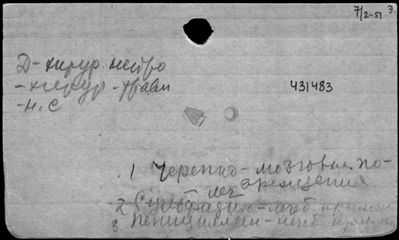 7/2-51 3.
Д-хирур нейро
-хирур-травм
-н.с
431483
1 Черепно-мозговые по-
вреждения
леч
2 Сульфадин-леч. примен
3 пенициллин-леч. примен